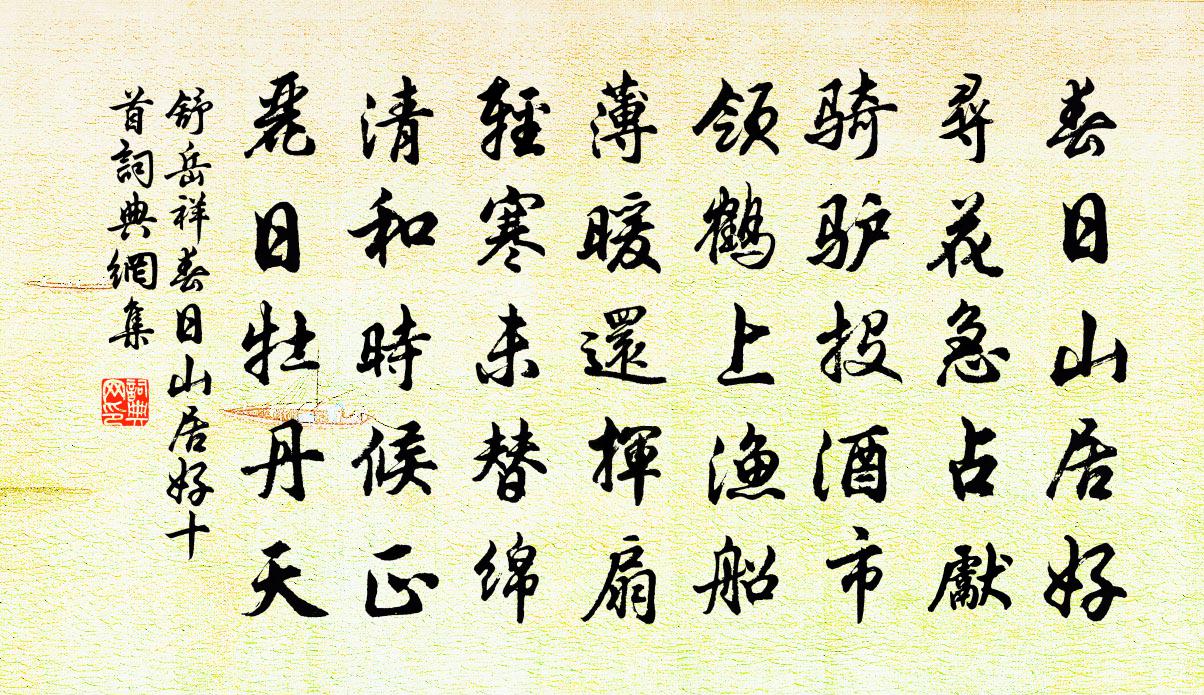 春日山居好
尋花急占獻
骑驴投酒市
领鹤上漁船
薄暖還揮扇
輕寒未替绵
清和時候正
麗日牡丹天
舒岳祥春日山居好十
首詞典網集
詞典
网印